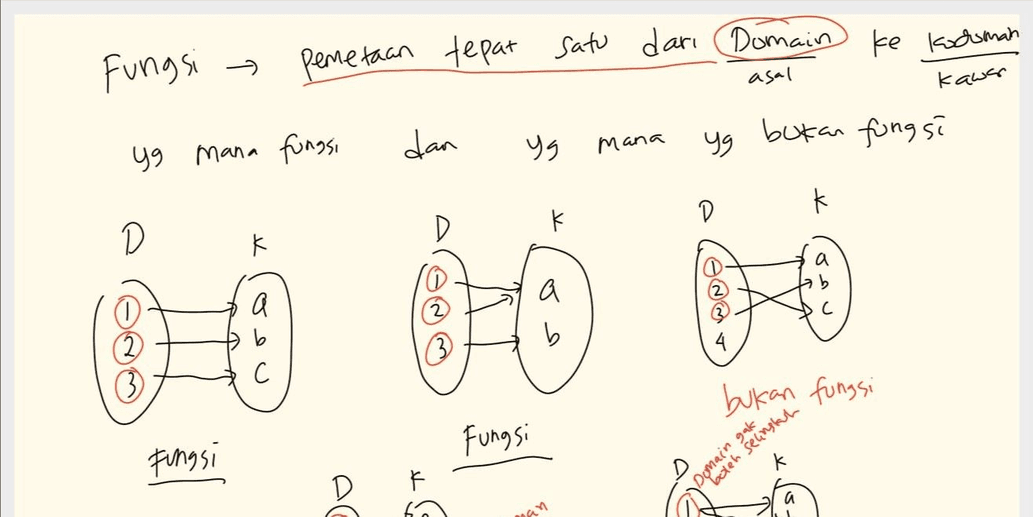 Fungsi → Pemetaan tepat satu dari Domain ke Kodomain
asal
Kawan
yg mana fungsi dan yg mana yg bukan fungsi
D K
1 a
2 b
3 c
Fungsi
D K
1 a
2 b
3
Fungsi
D K
1 a
2 b
3 c
4
bukan fungsi
Domain gak
boleh selingkuh
D K
D K
1 a